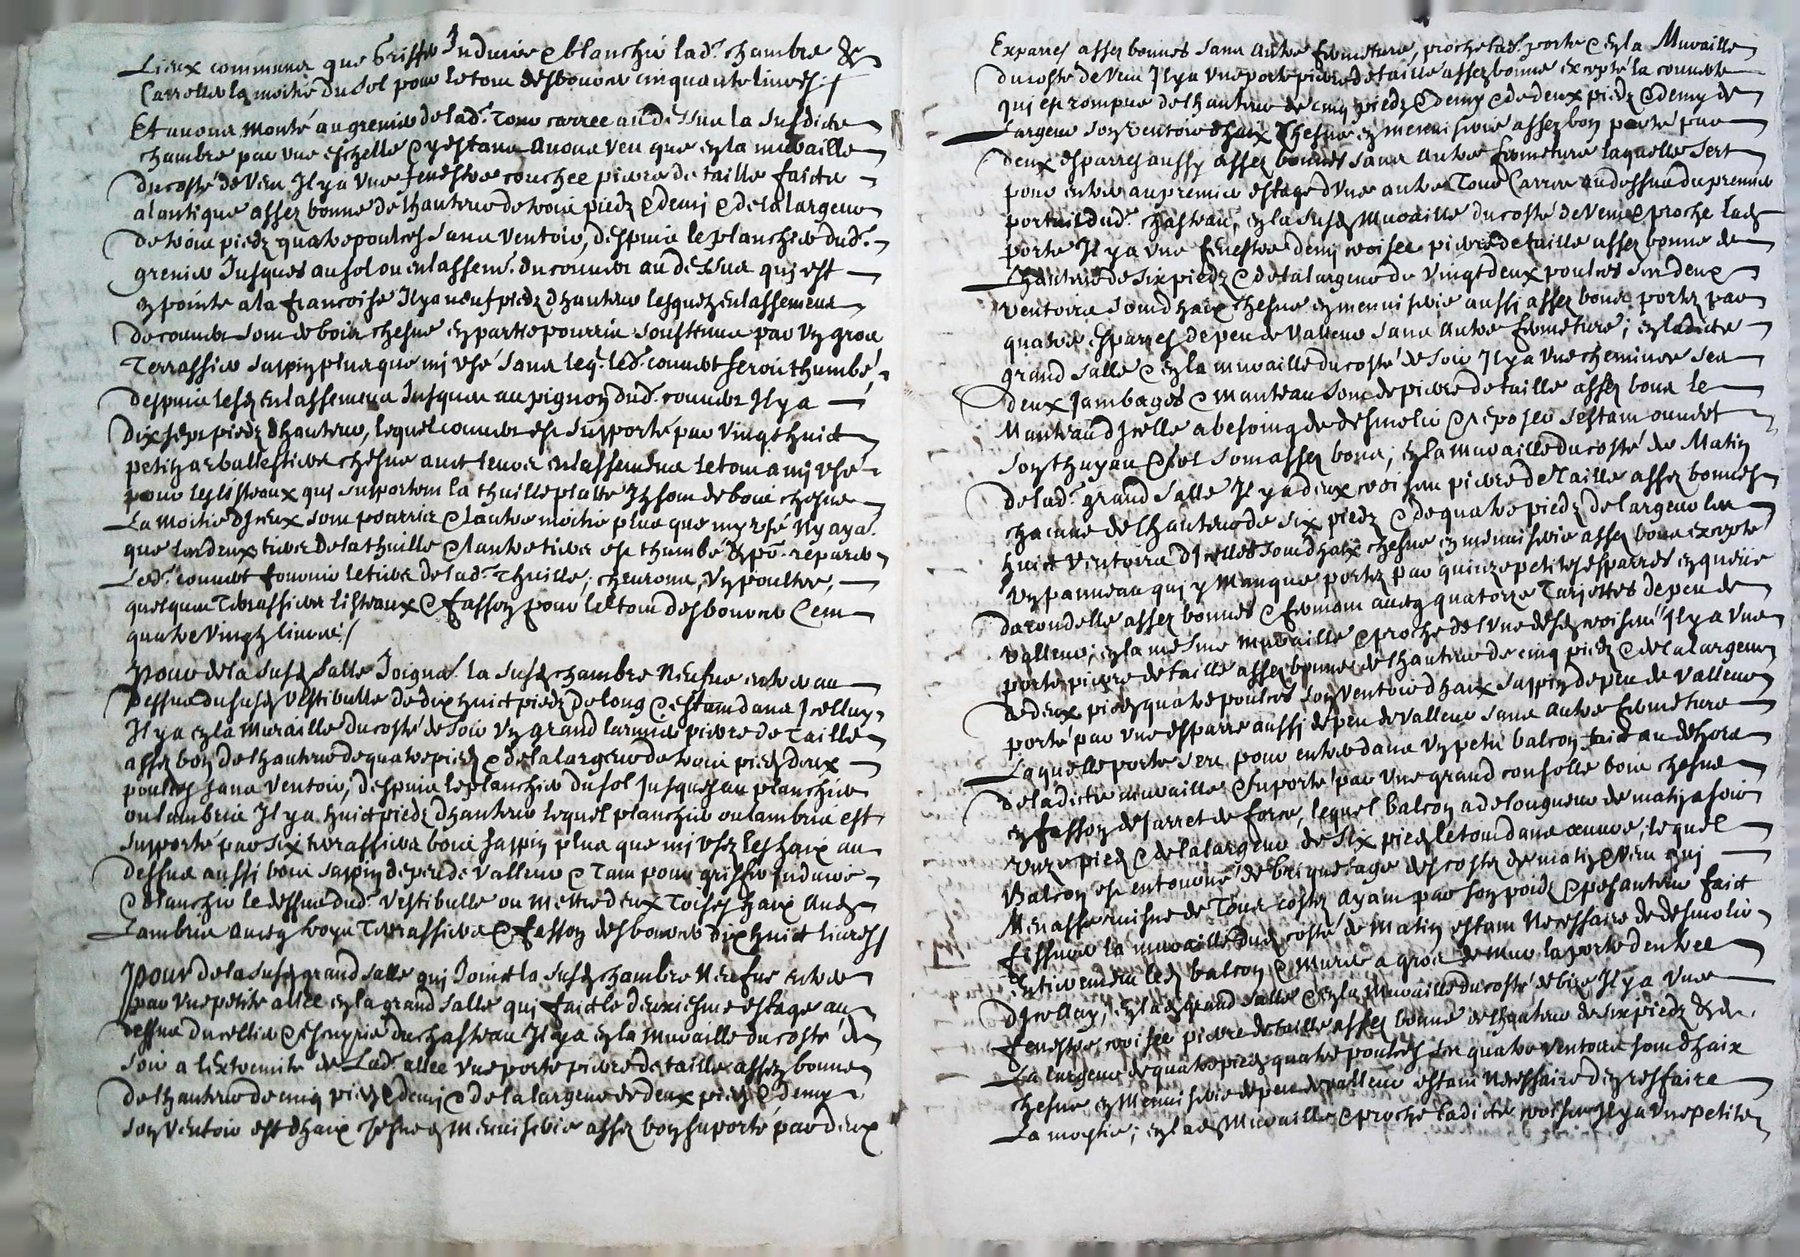 Lieux communs que griffer Induire & blanchir lad.e chambre &
Carreller la moitié du sol pour le tout desbourser cinquante livres /
Et avons monté au grenier de lad.e Tour carree au dessus la susdicte
chambre par une eschelle & y estans avons veu que en la muraille
du costé de Vent Il y a une fenestre couchee pierre de taille faicte
a lantique assez bonne de lhauteur de trois piedz & demi & de la largeur
de trois piedz quatre poulces sans ventoir, despuis le planchier dud.
grenier Jusques au sol ou enlassem.t du couvert au dessus qui est
en pointe a la francoise Il y a neuf piedz dhauteur lesquez enlassemens
de couvert sont de bois chesne en partie pourris soustenus par un gros
Terrassier sappin plus que mi usé sans leq.l led. couvert seroit thumbé,
despuis lesd. enlassemens Jusques au pignon dud. couvert Il y a
dix sept piedz dhauteur, lequel couvert est supporté par vingt huict
petitz arballestiers chesne avec leurs enlassemens le tout a mi usé
pour les listeaux qui supportent la thuille platte Ilz sont de bois chesne
La moitié diceux sont pourris & lautre moitié plus que my usé Ny aya.t
que les deux tiers de la thuille & lautre tiers est thumbé & po.r reparer
Led. couvert fournir le tiers de lad.e Thuille, chevrons, un poultre,
quelques Terrassiers listeaux & fasson pour le tout desbourser Cent
quatre vingtz livres /
Pour de la susd. salle Joigna.t la susd. chambre Neufve entre au
dessus du susd. vestibulle de dix huict piedz de long & estant dans Icelluy
Il y a en la muraille du costé de soir un grand larmier pierre de Taille
assez bon de lhauteur de quatre piedz & de la largeur de trois piedz deux
poulces sans ventoir, despuis le planchier du sol Jusques au planchier
ou lambris Il y a huict piedz dhauteur lequel planchier ou lambris est
supporté par six terrassiers bois sappin plus que mi usez les haix au
dessus aussi bois sappin de peu de valleur & Tant pour griffer Induire
& blanchir le dessus dud. vestibulle ou mettre deux Toises haix aud.
Lambris avecq trois Terrassiers & fasson desbourser dix huict livres /
Pour de la susd. grand salle qui Joinct la susd. chambre Neufve entre
par une petite allee en la grand salle qui faict le deuxiesme estage au
dessus du cellier & escuyrie du chasteau Il y a en la muraille du costé de
soir a lextremité de Lad. allee une porte pierre de taille assez bonne
de lhauteur de cinq piedz & demi & de la largeur de deux piedz & demy
son ventoir est dhaix chesne en menuiserie assez bon suporté par deux
Exparres assez bonnes sans autre fermeture, proche lad. porte & en la Muraille
du costé de Vent Il y a une porte pierre de taille assez bonne excepté la couverte
qui est rompue de lhauteur de cinq piedz & demy & de deux piedz & demy de
Largeur son ventoir dhaix Chesne en menuiserie assez bon porté par
deux esparres aussy assez bonnes sans autre fermeture laquelle sert
pour entrer au premier estage dune autre Tour Carree au dessus du premier
portail dud. chasteau, en la susd. Muraille du costé de Vent & proche lad.
porte Il y a une fenestre demi croisee pierre de taille assez bonne de
Lhauteur de six piedz & de la largeur de vingt deux poulces ses deux
ventoirs sont dhaix chesne en menuiserie aussi assez bons portez par
quatre esparres de peu de valleur sans autre fermeture; en ladicte
grand salle & en la muraille du costé de soir Il y a une cheminee ses
deux Jambages & manteau sont de pierre de taille assez bons le
Manteau dicelle a besoing de desmolir & reposer sestant ouvert
son thuyau & sol sont assez bons, en la muraille du costé de Matin
de lad.e grand salle Il y a deux croisees pierre de taille assez bonnes
chacune de lhauteur de six piedz & de quatre piedz de largeur les
huict ventoirs dicelles sont dhaix chesne en menuiserie assez bons excepté
un panneau qui y Manque portez par quinze petites esparres en queue
darondelle assez bonnes & fermant avecq quatorze Tarjettes de peu de
valleur; en la mesme muraille & proche de lune desd. croisees Il y a une
porte pierre de taille assez bonne de lhauteur de cinq piedz & de la largeur
de deux piedz quatre poulces son ventoir dhaix sappin de peu de valleur
porté par une esparre aussi de peu de valleur sans autre fermeture
Laquelle porte sert pour entrer dans un petit balcon faict au dehors
de ladicte muraille suporté par une grand consolle bois chesne
en fasson de Jarret de force, lequel balcon a de longueur de matin a soir
unze piedz & de la largeur de six piedz le tout dans œuvre, lequel
Balcon est entourré de briquetage des costez de matin & Vent qui
Menasse ruisne de Tous costez ayant par son poidz & pesanteur faict
fissurer la muraille dud. costé de Matin estant Necessaire de desmolir
Entierement led. balcon & murer a gros de mur la porte dentree
dicelluy, en lad. grand salle & en la muraille du costé de bize Il y a une
fenestre croisee pierre de taille assez bonne de lhauteur de six piedz & de
La largeur de quatre piedz quatre poulces ses quatre ventoirs sont dhaix
chesne en Menuiserie de peu de valleur estant Necessaire den reffaire
La moytie; en lad. Muraille & proche ladicte croisee Il y a une petite